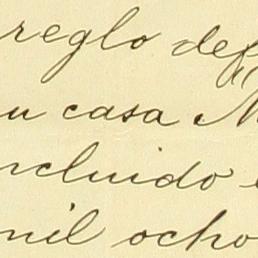 reglo def
u casa M
ncluido
mil ocho